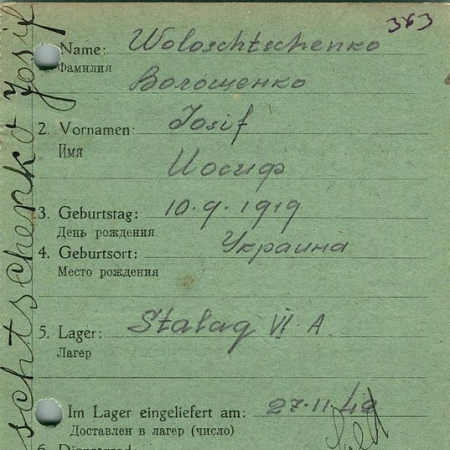 363
Name: Woloschtschenko
Фамилия
Волощенко
2. Vornamen: Iosif
Имя
Иосиф
3. Geburtstag: 10.9.1919
День рождения
4. Geburtsort: Украина
Место рождения
5. Lager: Stalag VI A
Лагер
Im Lager eingeliefert am: 27.11.42
Доставлен в лагер (число)
schtschenko Josif